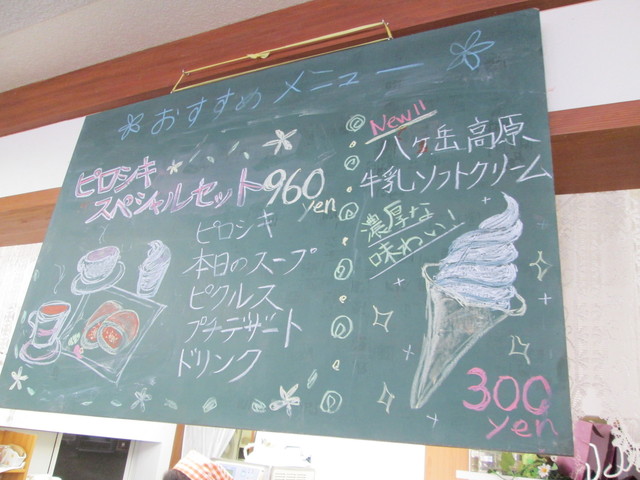 おすすめメニュー
ピロシキ
スペシャルセット960
yen
ピロシキ
本日のスープ
ピクルス
プチデザート
ドリンク
New!!
八ヶ岳高原
牛乳ソフトクリーム
濃厚な
味わい!
300
yen